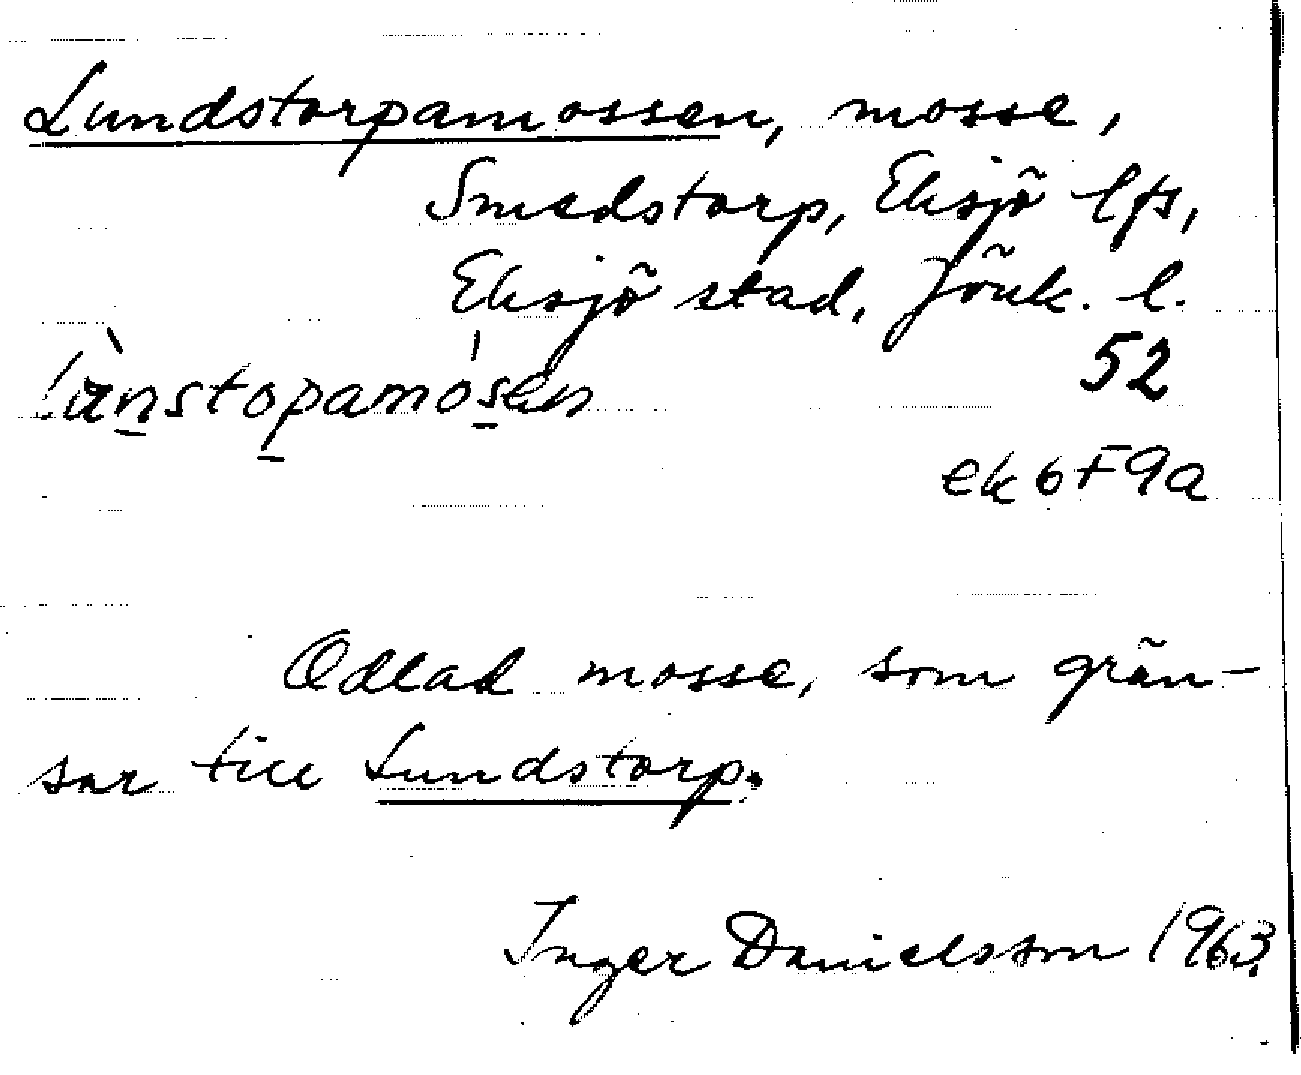 Lundstorpamossen, mosse,
Smedstorp, Eksjö lfs,
Eksjö stad, Jönk. l.
52
ek 6F9a
Odlad mosse, som grän-
sar till Lundstorp.
Inger Danielsson 1963